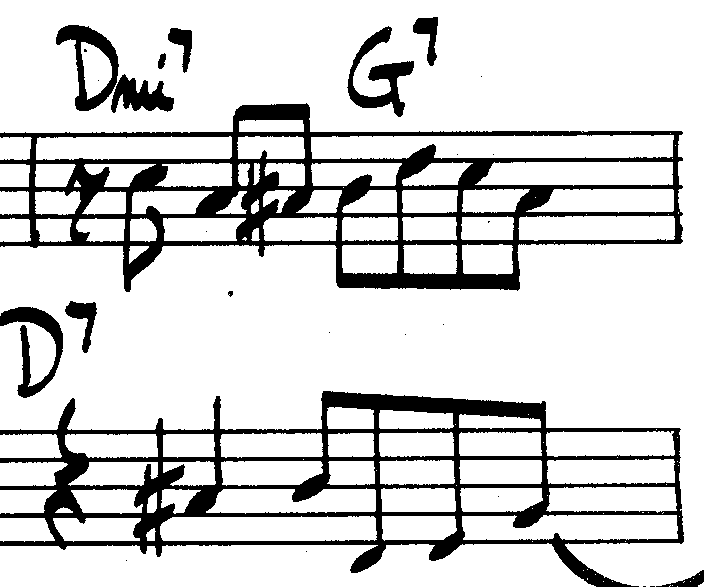 Dmi7 G7
D7